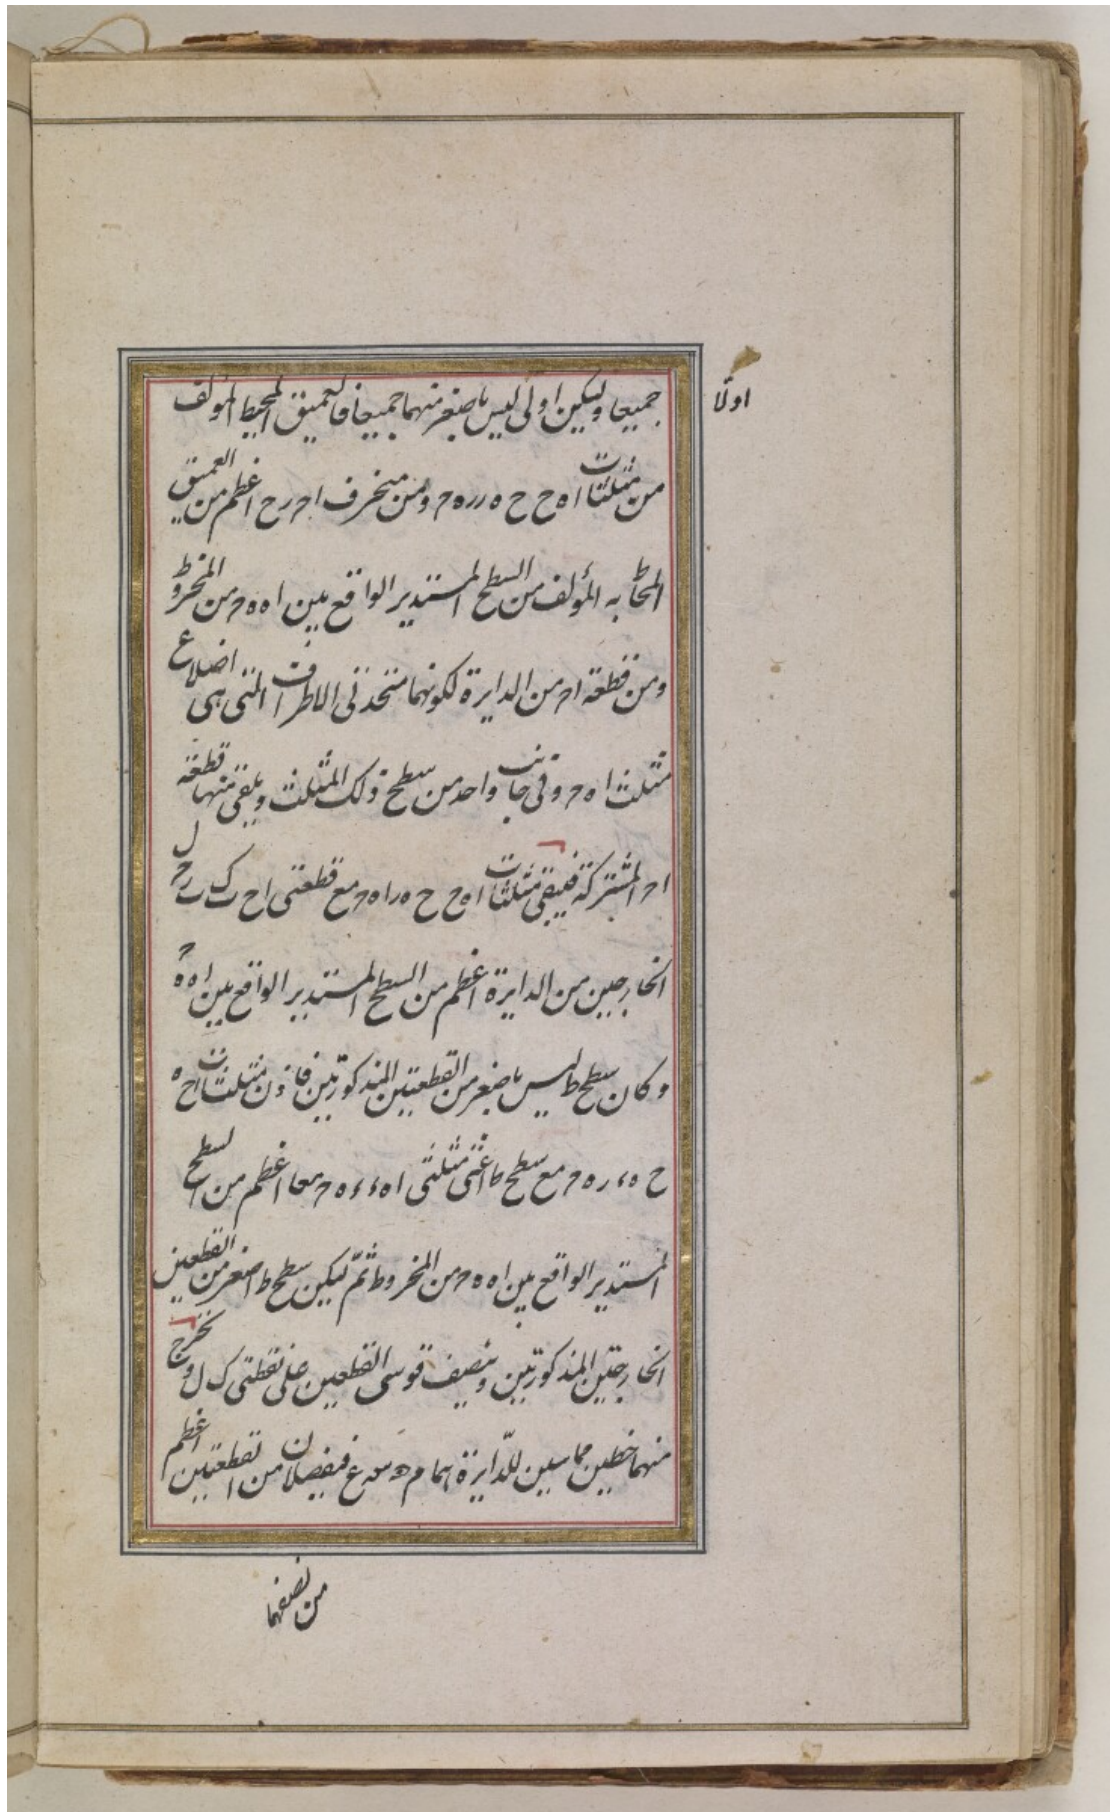 اولا
جميعا وليكن اولى ليس باصغر منهما جميعا فالعميق المحيط المؤلف
من مثلثات ا ه ح ح ه ر ر ه م ومن منحرف ا م ر ح اعظم من العميق
المحا به المؤلف من السطح المستدير الواقع بين ا ه ه م من المخروط
ومن قطعة ا م من الدايرة لكونهما متحدتى الاطراف التى هى اضلاع
مثلث ا ه م وفى جانب واحد من سطح ذلك المثلث ويلقى منها قطعة
ا م المشتركة فيبقى مثلثات ا ه ح ح ه ر ا ه م مع قطعتى ا ح ك ر م ل
الخارجين من الدايرة اعظم من السطح المستدير الواقع بين ا ه ه م
وكان سطح ط ليس باصغر من القطعتين المذكورتين فاذن مثلثات ا ح ه
ح ه ر ه م مع سطح ط اعنى مثلثى ا ه ء ء ه م معا اعظم من السطح
المستدير الواقع بين ا ه ه م من المخروط ثم ليكن سطح ط اصغر من القطعين
الخارجتين المذكورتين وننصف قوسى القطعين على نقطتى ك ل ونخرج
منهما خطين مماسين للدايرة هما م ع فيفصلان من القطعتين اعظم
من نصفهما